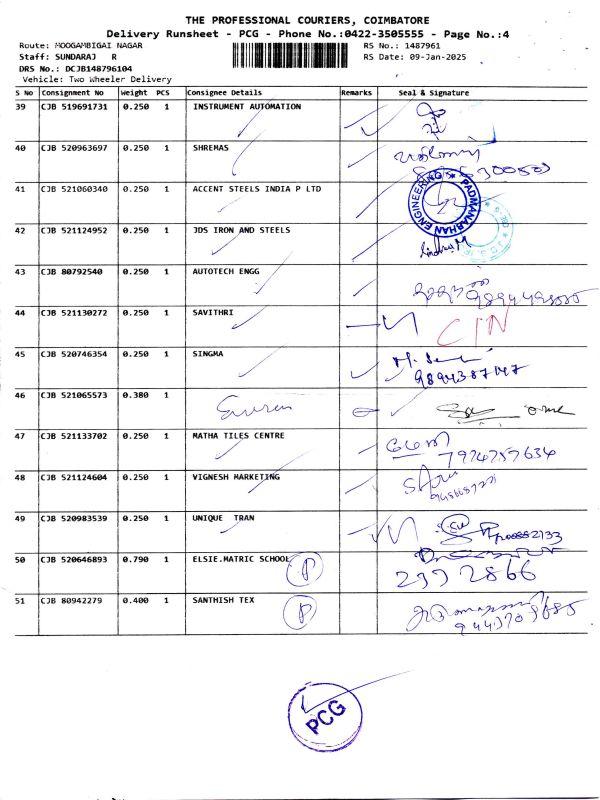 THE PROFESSIONAL COURIERS, COIMBATORE
Delivery Runsheet - PCG - Phone No.:0422-3505555 - Page No.:4
Route: MOOGAMBIGAI NAGAR RS No.: 1487961
Staff: SUNDARAJ R RS Date: 09-Jan-2025
DRS No.: DCJB148796104
Vehicle: Two Wheeler Delivery
S No Consignment No Weight PCS Consignee Details Remarks Seal & Signature
39 CJB 519691731 0.250 1 INSTRUMENT AUTOMATION
40 CJB 520963697 0.250 1 SHREMAS
41 CJB 521060340 0.250 1 ACCENT STEELS INDIA P LTD
PADMANABHAN ENGINEERING
42 CJB 521124952 0.250 1 JDS IRON AND STEELS
43 CJB 80792540 0.250 1 AUTOTECH ENGG
44 CJB 521130272 0.250 1 SAVITHRI
45 CJB 520746354 0.250 1 SINGMA
9894387147
46 CJB 521065573 0.380 1
47 CJB 521133702 0.250 1 MATHA TILES CENTRE
48 CJB 521124604 0.250 1 VIGNESH MARKETING
49 CJB 520983539 0.250 1 UNIQUE TRAN
50 CJB 520646893 0.790 1 ELSIE.MATRIC SCHOOL P
51 CJB 80942279 0.400 1 SANTHISH TEX P
PCG